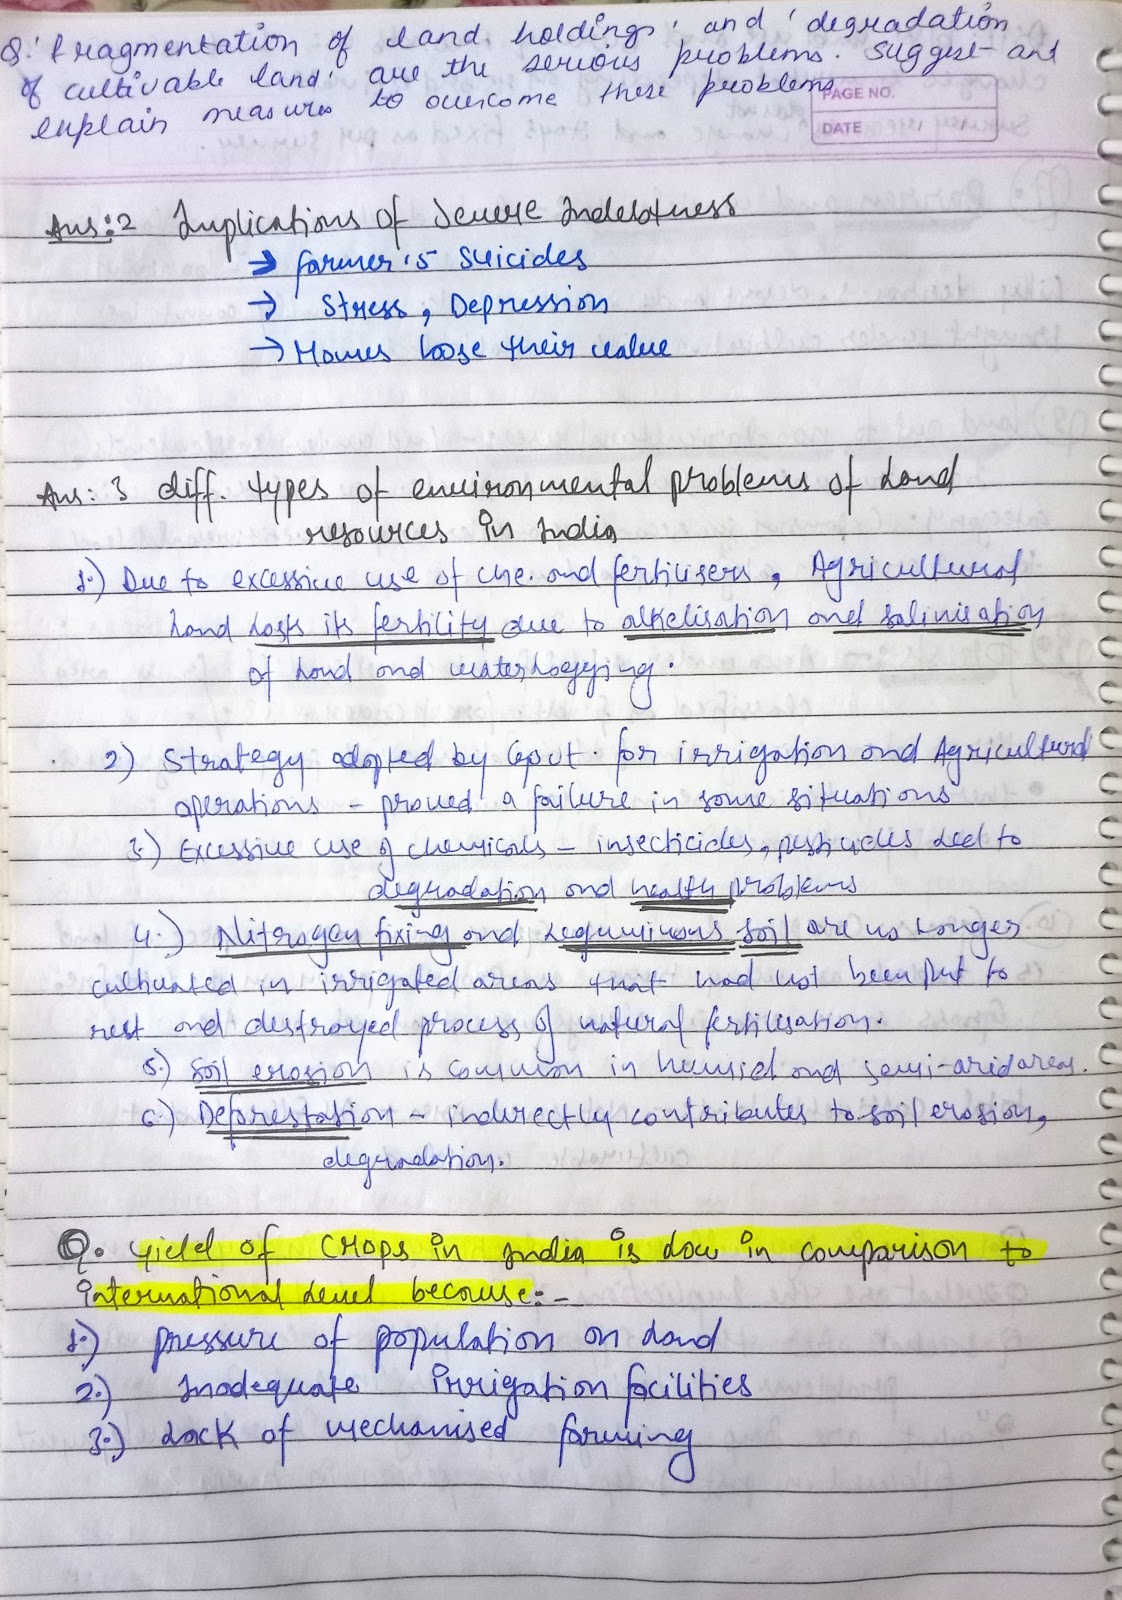 Q. 'fragmentation of land holdings' and 'degradation
of cultivable land' are the serious problems. Suggest and
explain measures to overcome these problems.
PAGE NO.
DATE
Ans:2 Implications of Severe Indebtness
→ farmer's Suicides
→ Stress, Depression
→ Homes loose their value
Ans: 3 diff. types of environmental problems of Land
resources in India
1.) Due to excessive use of che. and fertilisers, Agricultural
Land Losts its fertility due to alkelisation and salinisation
of Land and waterlogging.
2) Strategy adopted by Govt. for irrigation and Agricultural
operations - proved a failure in some situations
3.) Excessive use of chemicals - insecticides, pesticides led to
degradation and health problems
4.) Nitrogen fixing and Leguminous soil are no longer
cultivated in irrigated areas that had not been put to
rest and destroyed process of natural fertilisation.
5.) Soil erosion is common in humid and semi-arid areas.
6.) Deforestation - indirectly contributes to soil erosion,
degradation.
Q. yield of crops in India is low in comparison to
international level because:-
1.) pressure of population on Land
2.) Inadequate irrigation facilities
3.) Lack of mechanised farming